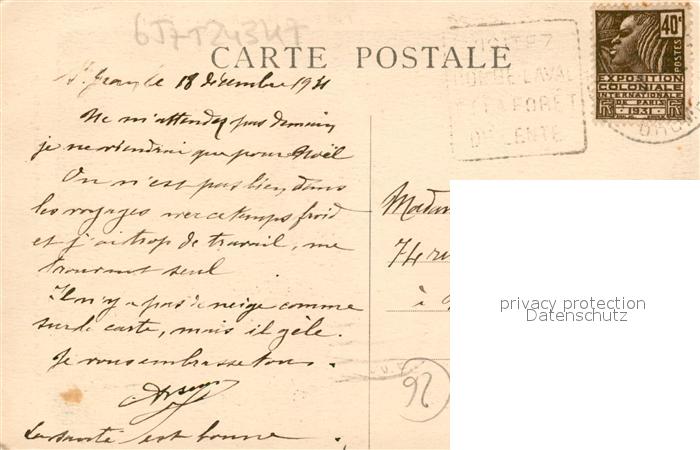 6J7T24347
CARTE POSTALE
St Jean le 18 décembre 1931
Ne m'attendez pas demain
je ne viendrai que pour Noël
On n'est pas bien dans
les voyages avec ce temps froid
et j'ai trop de travail, me
trouvant seul
Il n'y a pas de neige comme
sur la carte, mais il gèle.
Je vous embrasse tous.
La santé est bonne
VISITEZ
LAVAL
FORÊT
DE LENTE
40c
POSTES
EXPOSITION
COLONIALE
INTERNATIONALE
DE PARIS
1931
Madam
74 ru
à
92
privacy protection
Datenschutz